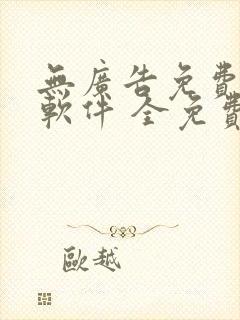 無廣告免費
軟件 全免費
歐越